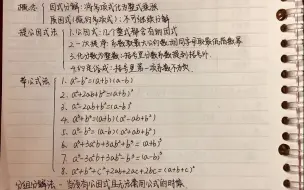 概念 因式分解：将多项式化为整式乘积
质因式(做的多项式)：不可继续分解
提公因式法 1.公因式：几个整式都含有的因式
2.一次提净：系数取最大公约数，相同字母取最低指数幂
3.化分数为整数：括号里分数系数提到括号外
4.约定俗成：括号里第一项系数不为负
套公式法 1. a²-b²=(a+b)(a-b)
2. a²+2ab+b²=(a+b)²
3. a²-2ab+b²=(a-b)²
4. a³+b³=(a+b)(a²-ab+b²)
5. a³-b³=(a-b)(a²+ab+b²)
6. a³+3a²b+3ab²+b³=(a+b)³
7. a³-3a²b+3ab²-b³=(a-b)³
8. a²+b²+c²+2ab+2ac+2bc=(a+b+c)²
分组分解法 - 当没有公因式且无法套用公式的时候